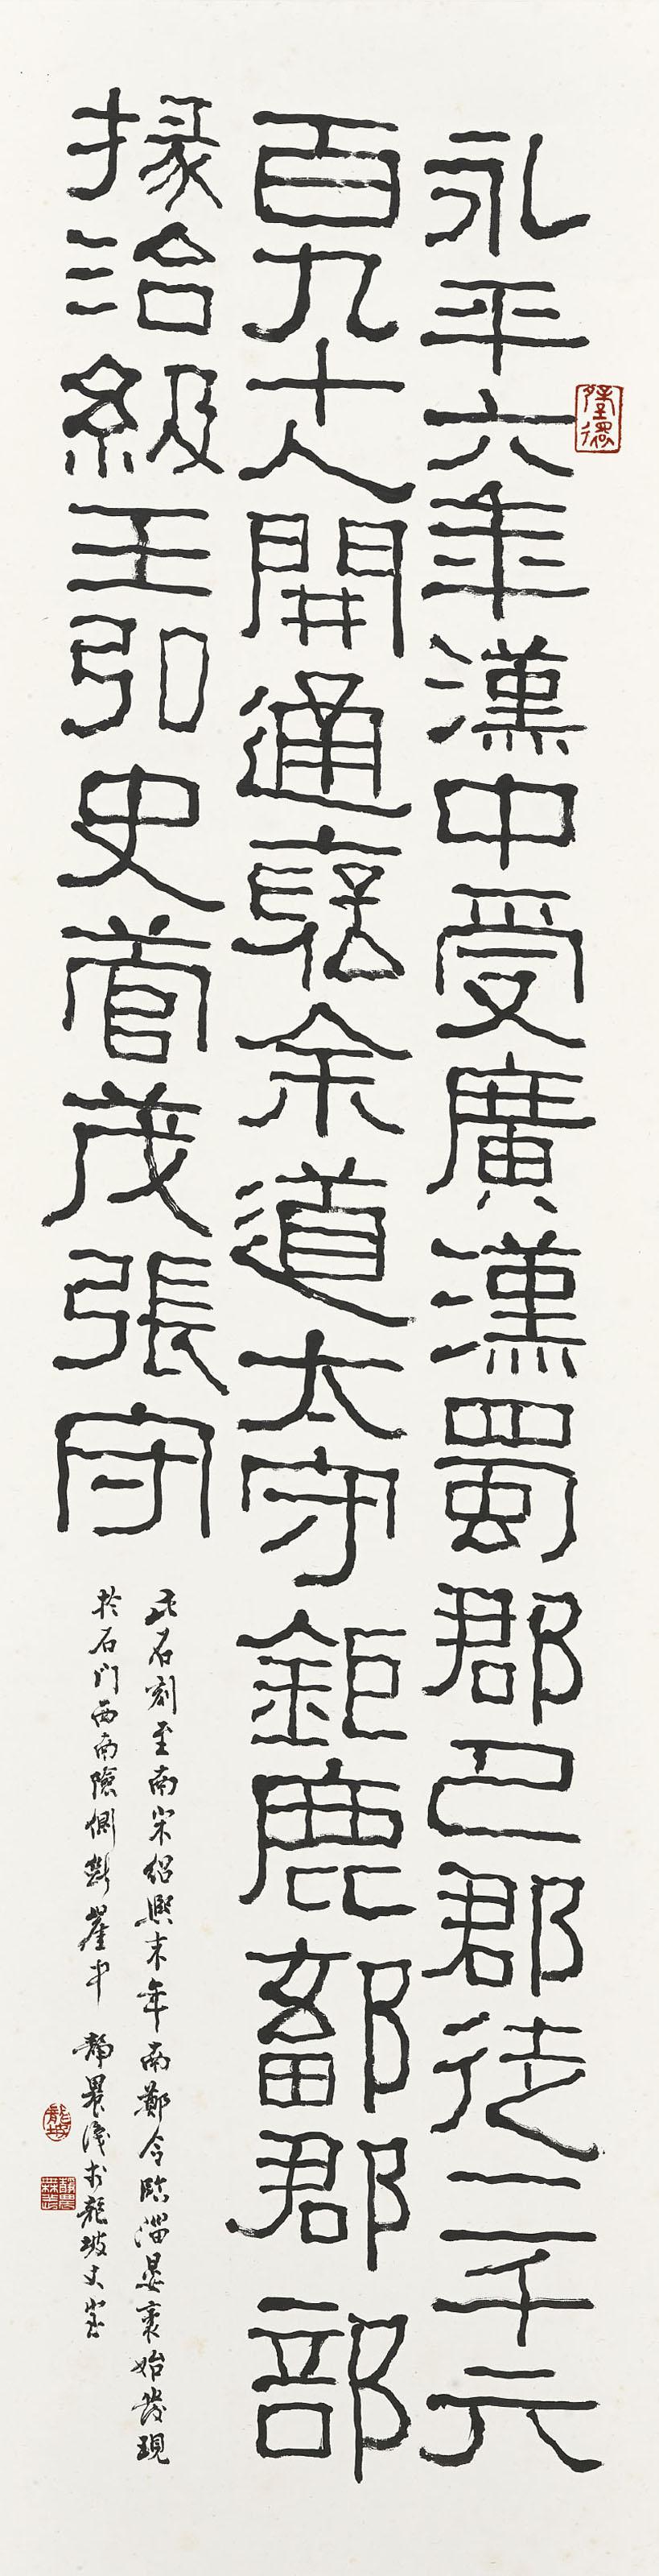 永平六年漢中受廣漢蜀郡巴郡徒二千六
百九十人開通褒余道太守鉅鹿鄐郡部
掾冶級王弘史荀茂張宇
此石刻至南宋紹熙末年南鄭令臨淄晏袤始發現
於石門西南險側斷崖中 靜農識於龍坡丈室
龍坡